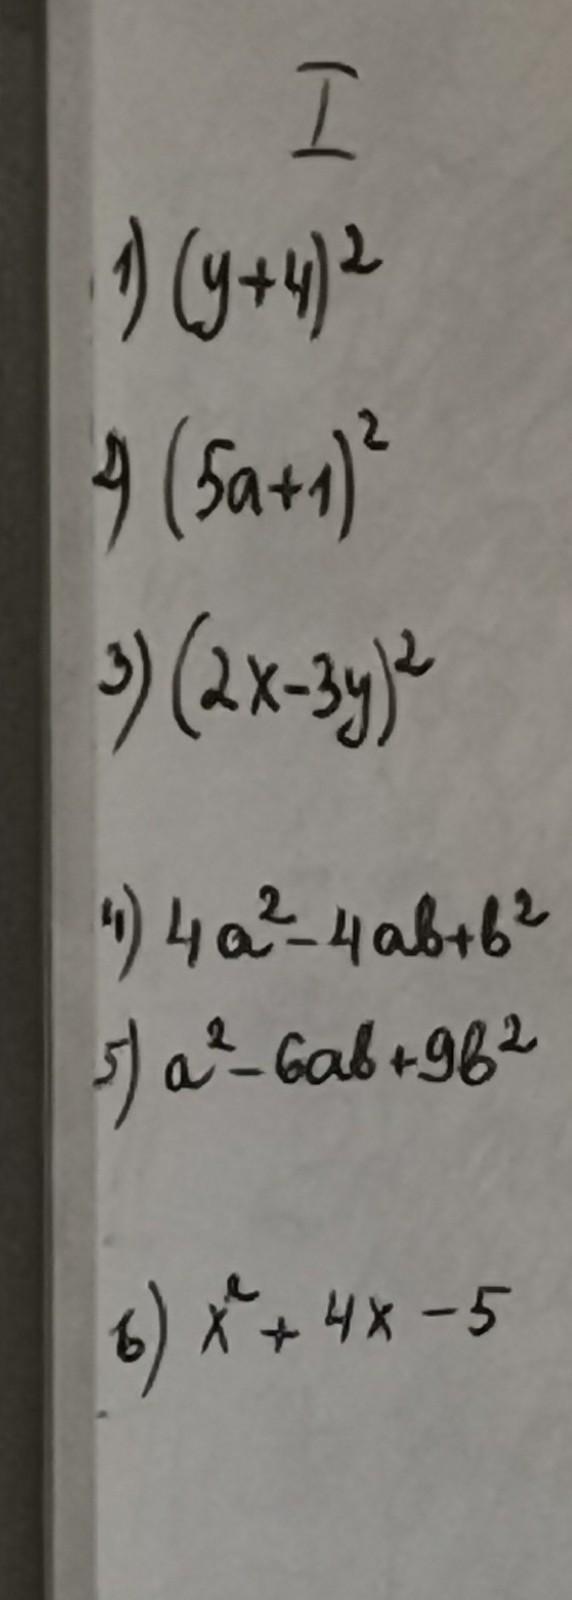 I
1) (y+4)²
2) (5a+1)²
3) (2x-3y)²
4) 4a²-4ab+b²
5) a²-6ab+9b²
6) x²+4x-5